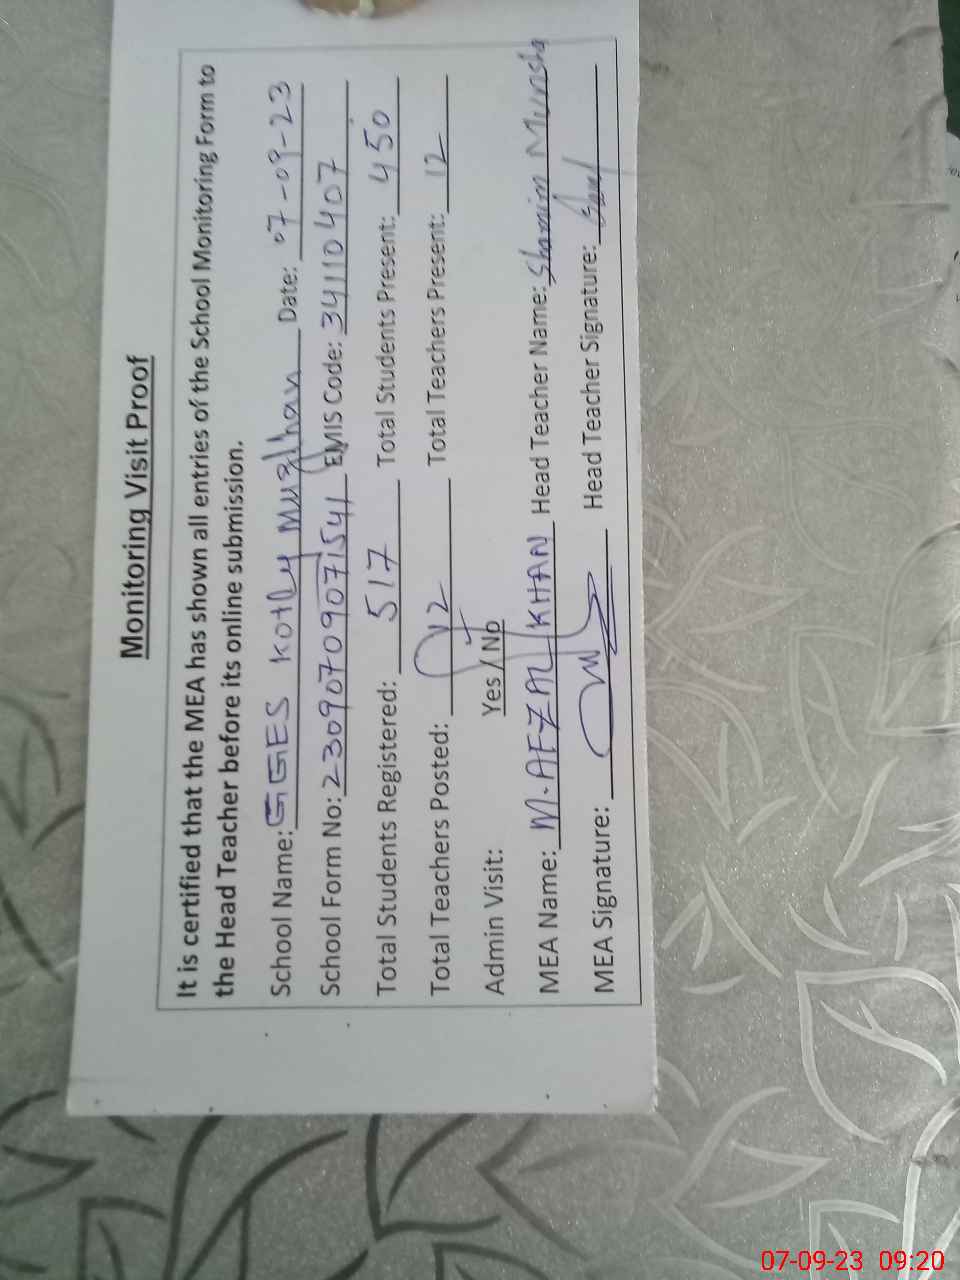 Monitoring Visit Proof
It is certified that the MEA has shown all entries of the School Monitoring Form to
the Head Teacher before its online submission.
School Name: GGES Kotly Mughan Date: 07-09-23
School Form No: 23090709071541 EMIS Code: 34110407
Total Students Registered: 517 Total Students Present: 450
Total Teachers Posted: 12 Total Teachers Present: 12
Admin Visit: Yes / No
MEA Name: M. AFZAL KHAN Head Teacher Name: Shamim Munsha
MEA Signature: Head Teacher Signature:
07-09-23 09:20